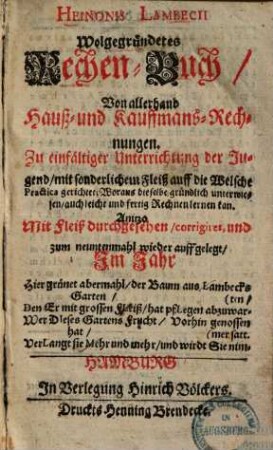 HEINONIS LAMBECII
Wolgegründetes
Rechen-Buch /
Von allerhand
Hauß- und Kauffmans-Rech-
nungen.
Zu einfältiger Unterrichtung der Ju-
gend / mit sonderlichem Fleiß auff die Welsche
Practica gerichtet, Woraus dieselbe gründlich unterwie-
sen / auch leicht und fertig Rechnen lernen kan.
Anitzo
Mit Fleiß durchgesehen / corrigiret, und
zum neuntenmahl wieder auffgelegt /
Im Jahr
Hier grünet abermahl / der Baum aus Lambecks-
Garten / (ten /
Den Er mit grossen Fleiß / hat pflegen abzuwar-
Wer Dieses Gartens Frucht / Vorhin genossen
hat / (mer satt.
Verlangt sie Mehr und mehr / und wird Sie nim-
HAMBURG
In Verlegung Hinrich Völckers.
Druckts Henning Brendecke.
AUGSBURG